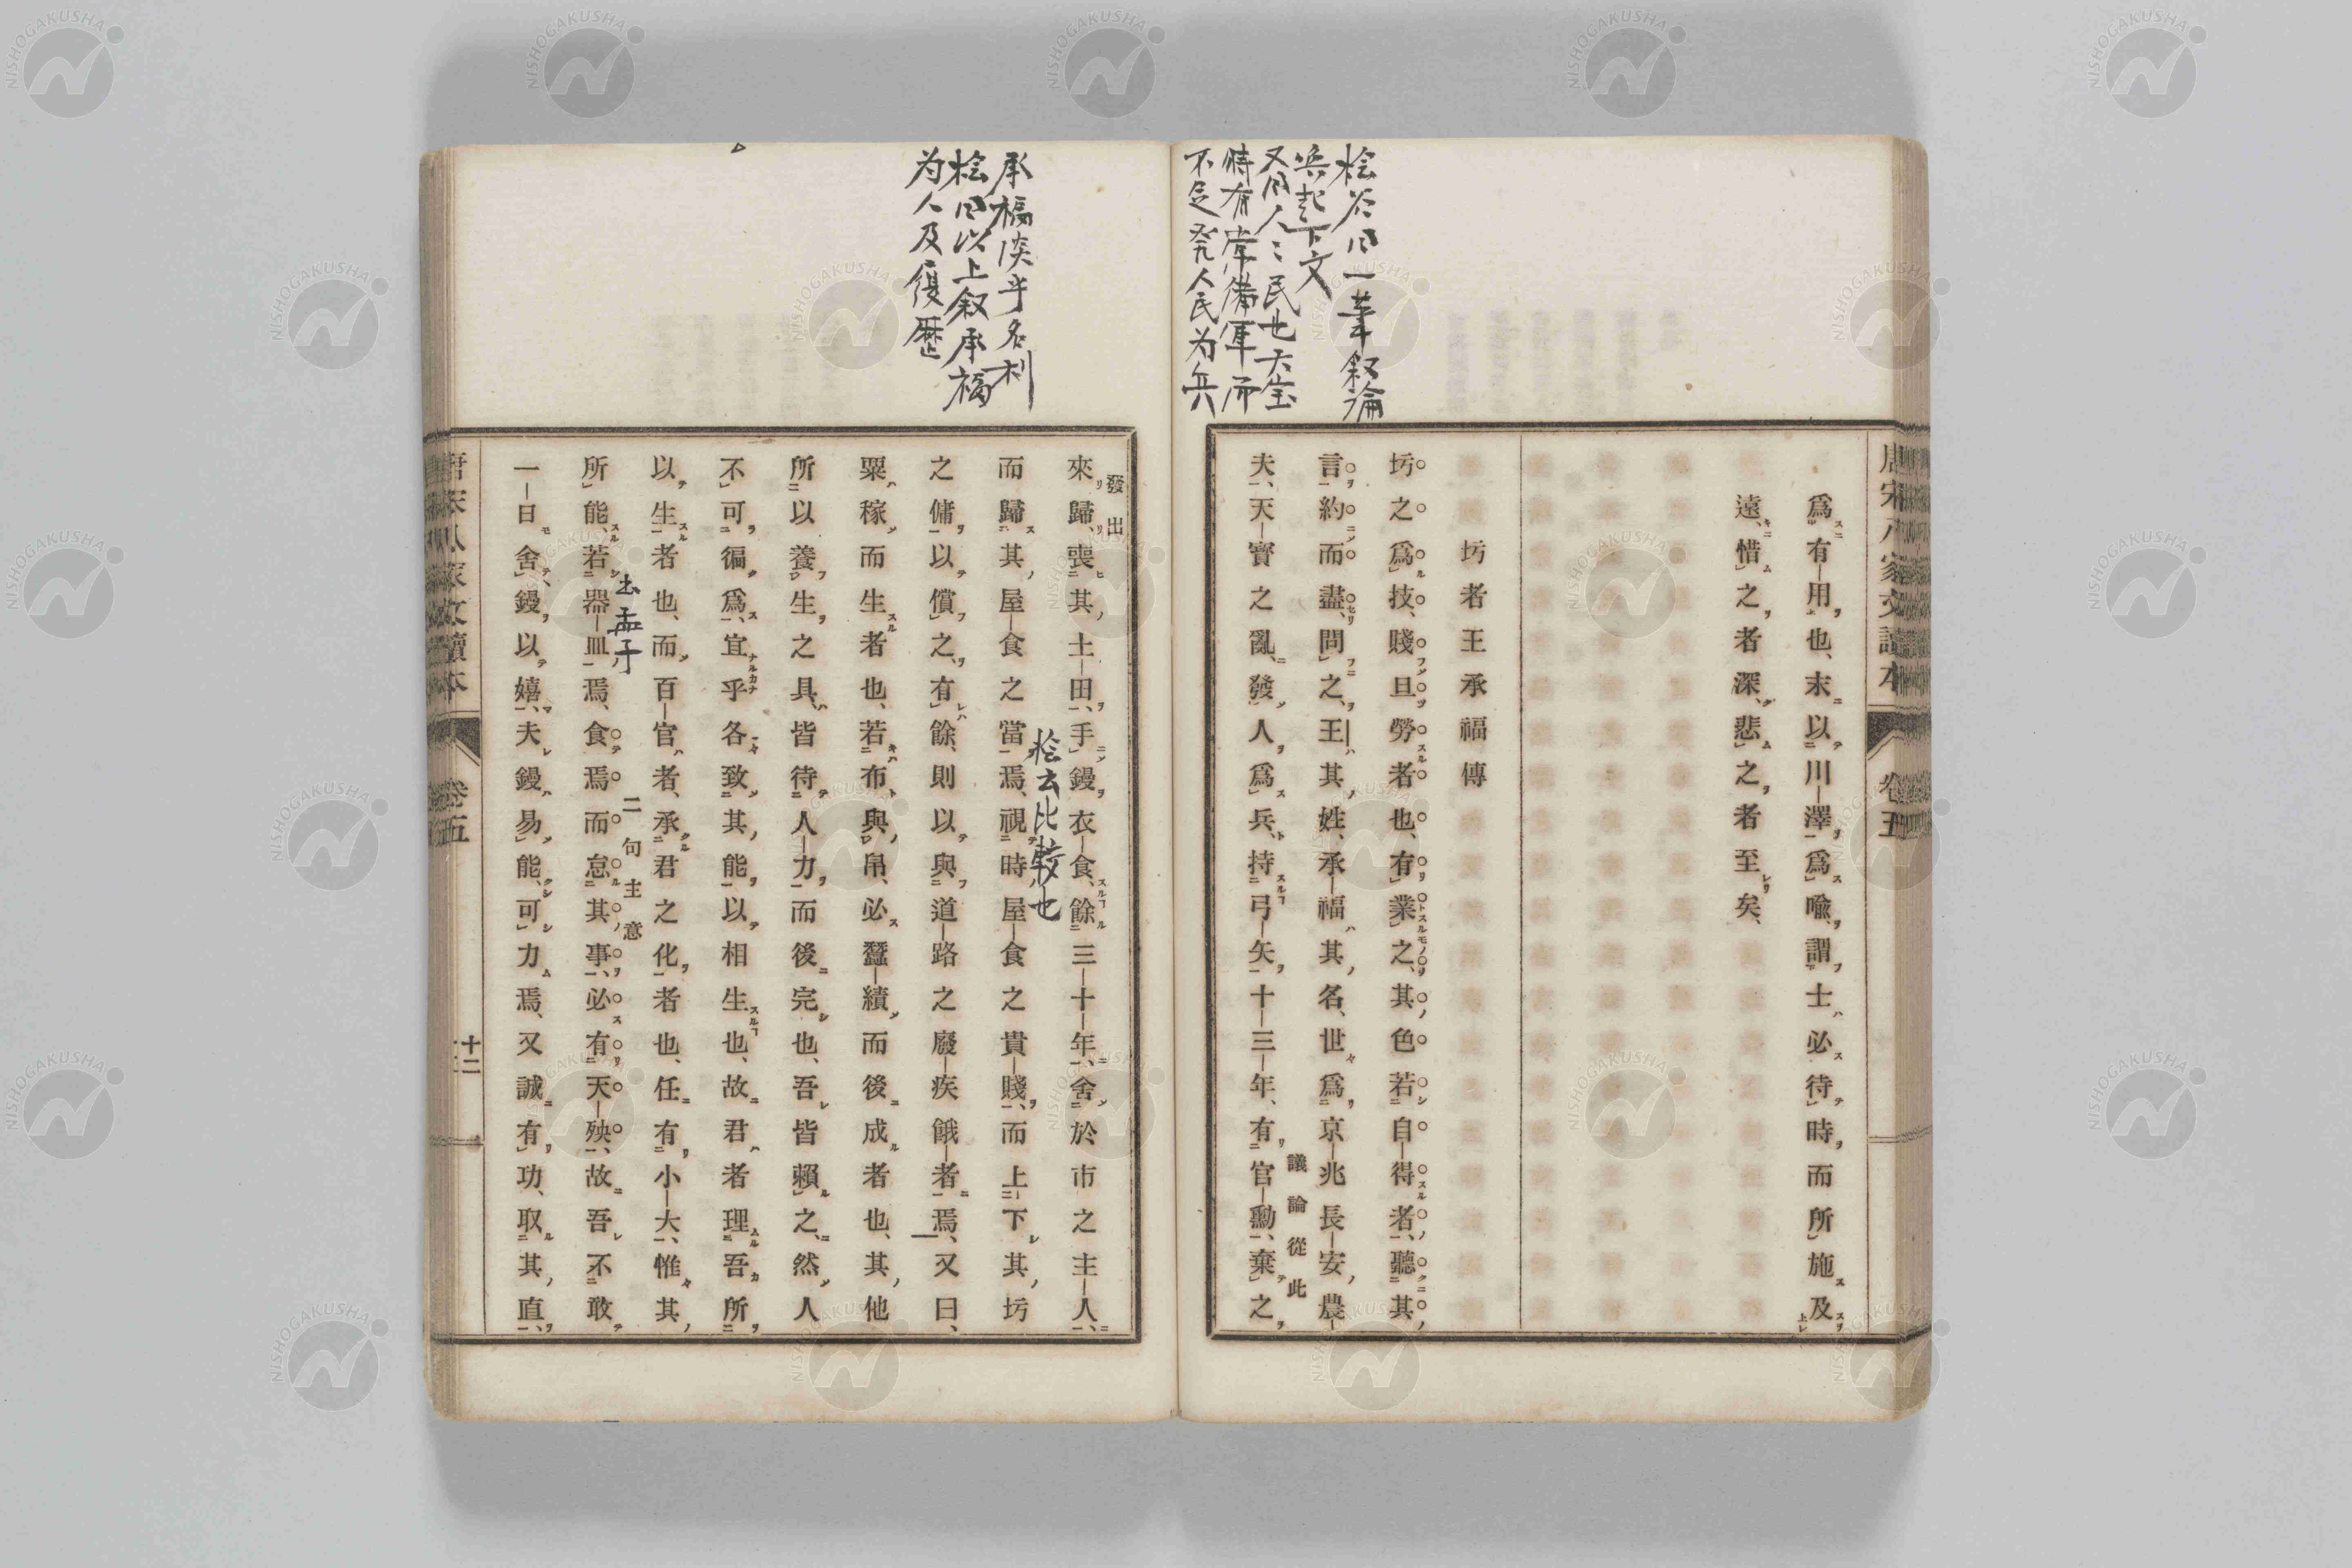 桧谷曰一筆叙論
喚起下文
又曰人ミ民也天宝
時有常備軍而
不足発人民为兵
唐宋八家文讀本 卷五
爲有用也、末以川澤爲喩、謂士必待時而所施及
遠、惜之者深、悲之者至矣、
圬者王承福傳
圬之爲技、賤且勞者也、有業之、其色若自得者、聽其
言、約而盡、問之、王其姓、承福其名、世爲京兆長安農
議論從此
夫、天寶之亂、發人爲兵、持弓矢十三年、有官勳、棄之
承福淡乎名利
桧曰以上叙承福
为人及履歴
發出
來歸、喪其土田、手鏝衣食、餘三十年、舍於市之主人、
桧云比較也
而歸其屋食之當焉、視時屋食之貴賤、而上下其圬
之傭、以償之、有餘、則以與道路之廢疾餓者焉、又曰、
粟稼而生者也、若布與帛、必蠶績而後成者也、其他
所以養生之具、皆待人力而後完也、吾皆賴之、然人
不可徧爲、宜乎各致其能、以相生也、故君者理吾所
以生者也、而百官者、承君之化者也、任有小大、惟其
出孟子
二句主意
所能、若器皿焉、食焉而怠其事、必有天殃、故吾不敢
一日舍鏝以嬉、夫鏝易能、可力焉、又誠有功、取其直、
唐宋八家文讀本 卷五 十二